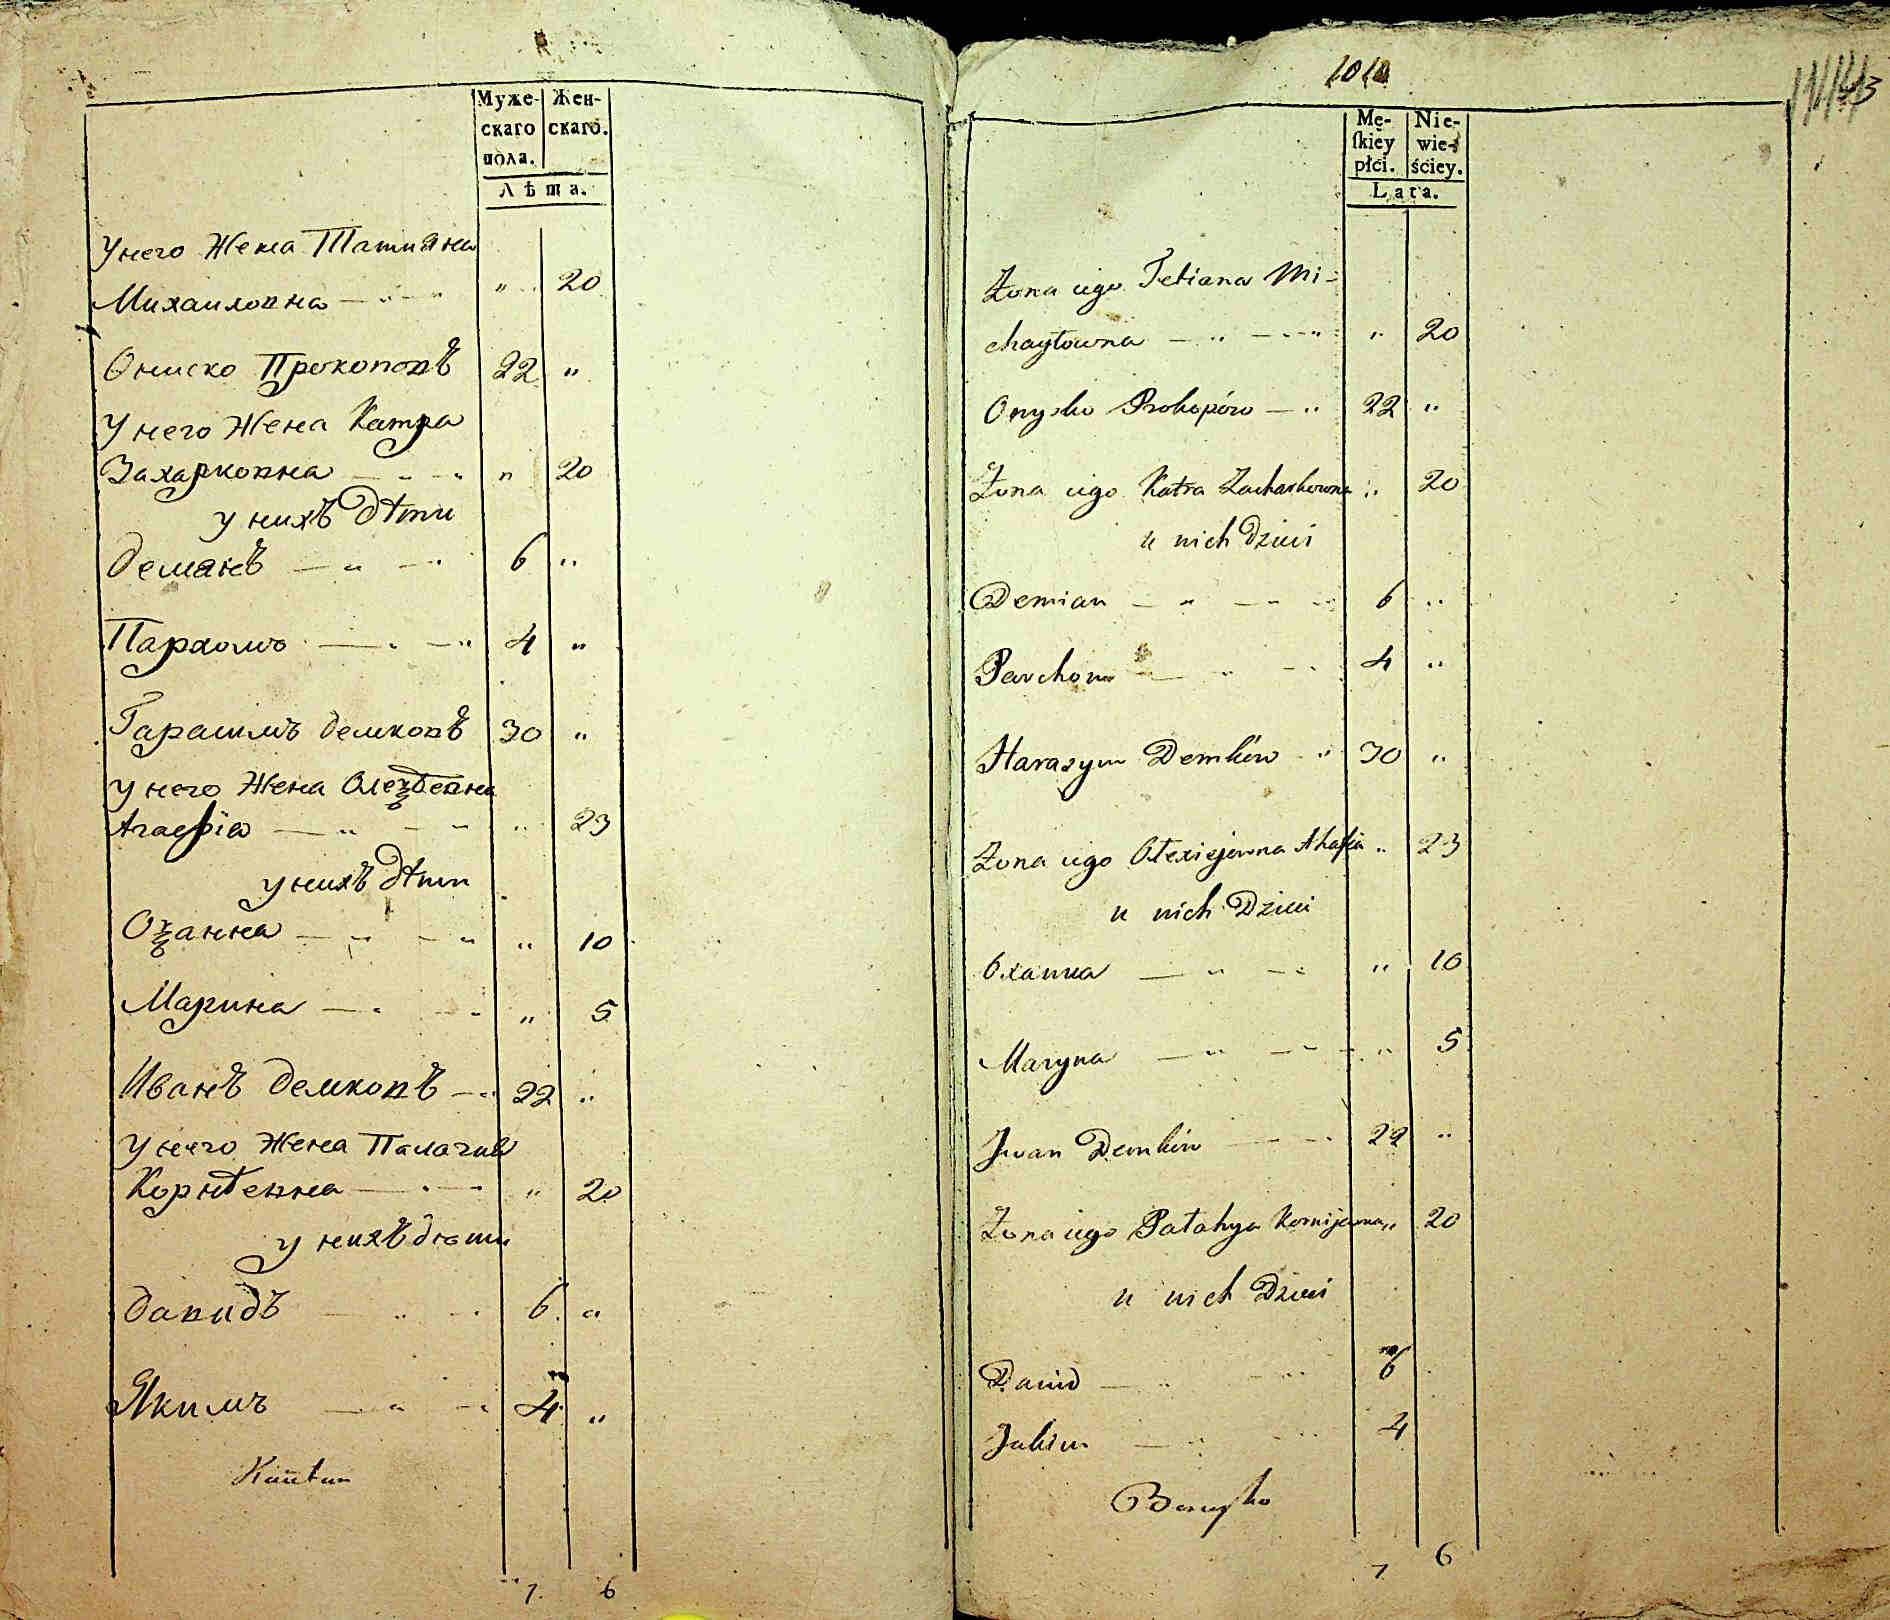 Муже- Жен-
скаго скаго.
пола.
Лѣта.
У него Жена Татияна
Михаиловна — „ — „ 20
Ониско Прокоповъ 22 „
У него Жена Катра
Захарковна — „ — „ „ 20
у нихъ дѣти
Демянъ — „ — „ 6 „
Пархомъ — „ — „ 4 „
Гарасимъ Демковъ 30 „
у него Жена Олеѯѣевна
Агафія — „ — „ „ 23
у нихъ дѣти
Оѯанна — „ — „ „ 10
Марина — „ — „ „ 5
Иванъ Демковъ — „ 22 „
У него Жена Палагия
Корнѣевна — „ — „ 20
у нихъ дѣти
Давидъ — „ — „ 6 „
Якимъ — „ — „ 4 „
7 6
1010
Mę- Nie-
ſkiey wie-
płci. ściey.
Lata.
Żona iego Tetiana Mi-
chayłowna — „ — „ „ 20
Onysko Prokopów — „ 22 „
Żona iego Katra Zacharkowna „ 20
u nich Dzieci
Demian — „ — „ 6 „
Parchom — „ — „ 4 „
Harasym Demków „ 30 „
Żona iego Ołexiejowna Ahafia „ 23
u nich Dzieci
Oxanna — „ — „ „ 10
Maryna — „ — „ „ 5
Jwan Demków — „ 22 „
Żona iego Pałahya Kornijewna „ 20
u nich Dzieci
Dawid — „ — „ 6
Jakim — „ — „ 4
7 6